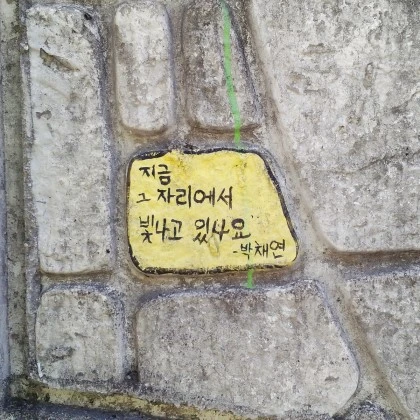 지금
그 자리에서
빛나고 있사요
-박채연